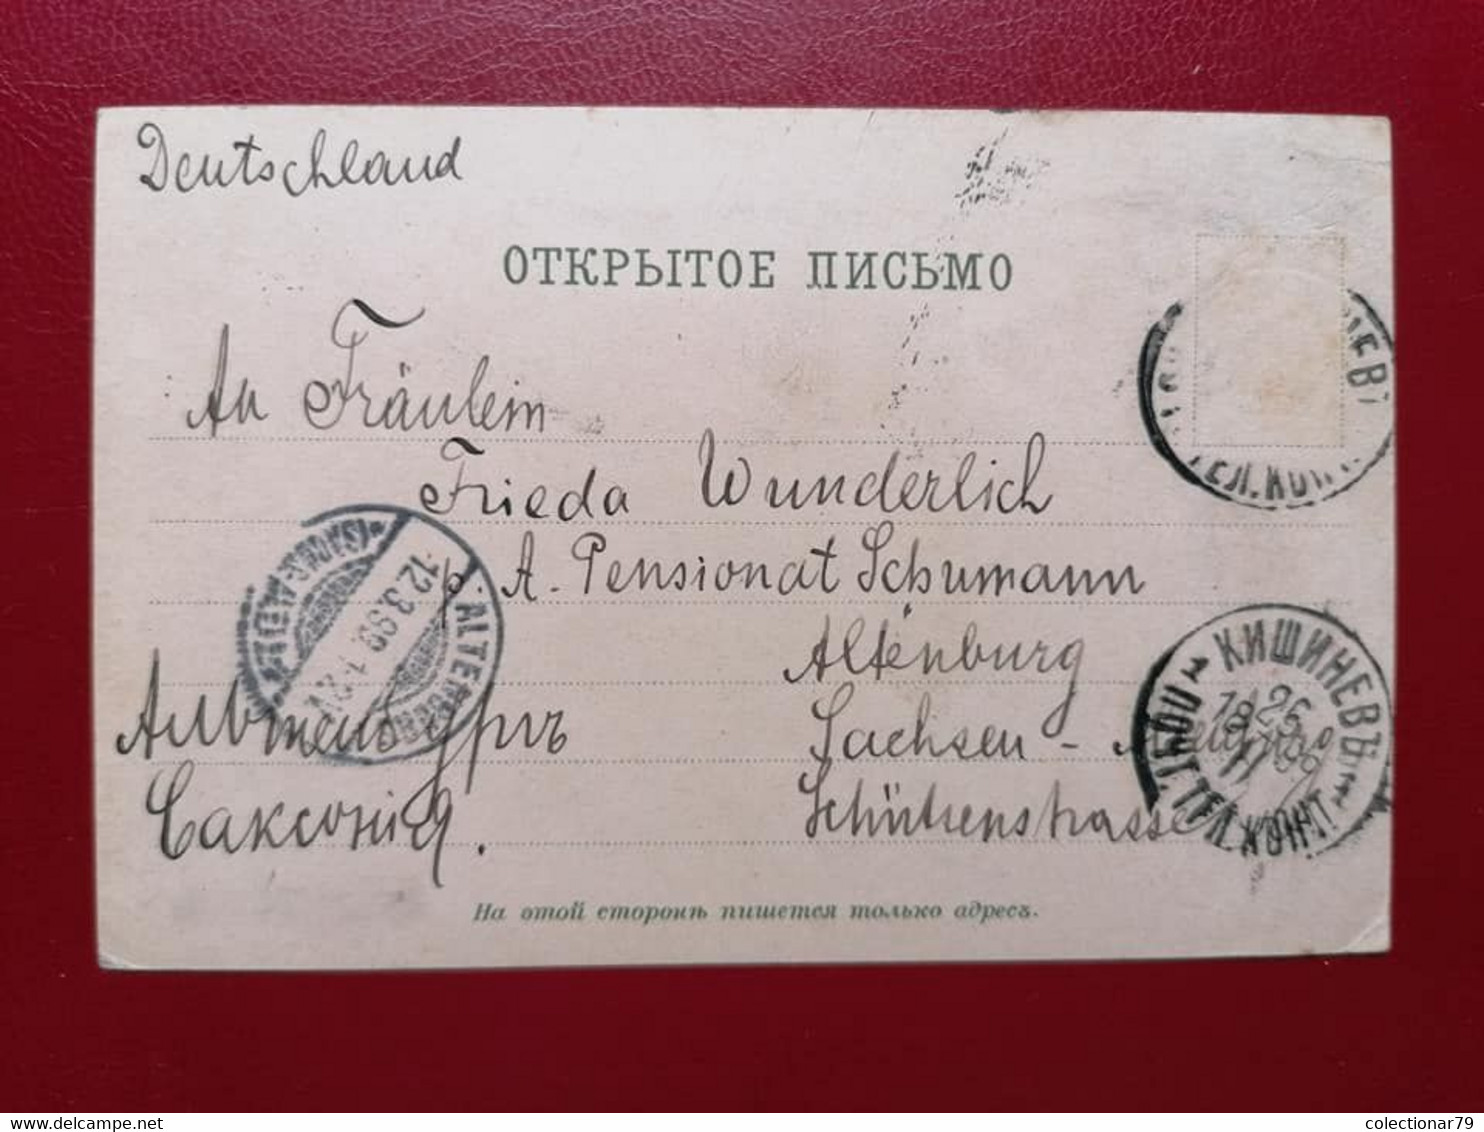 Deutschland
ОТКРЫТОЕ ПИСЬМО
An Fräulein
Frieda Wunderlich
p. A. Pensionat Schumann
Altenburg
Sachsen -
Schützenstrasse
Альтенбургъ
Саксонія.
На этой сторонѣ пишется только адресъ.
ТЕЛ. КОНТ
* КИШИНЕВЪ *
ПОЧТ. ТЕЛ. КОНТ.
26
ALTENBURG
(SACHS.-ALTB.)
12.3.99
colectionar79